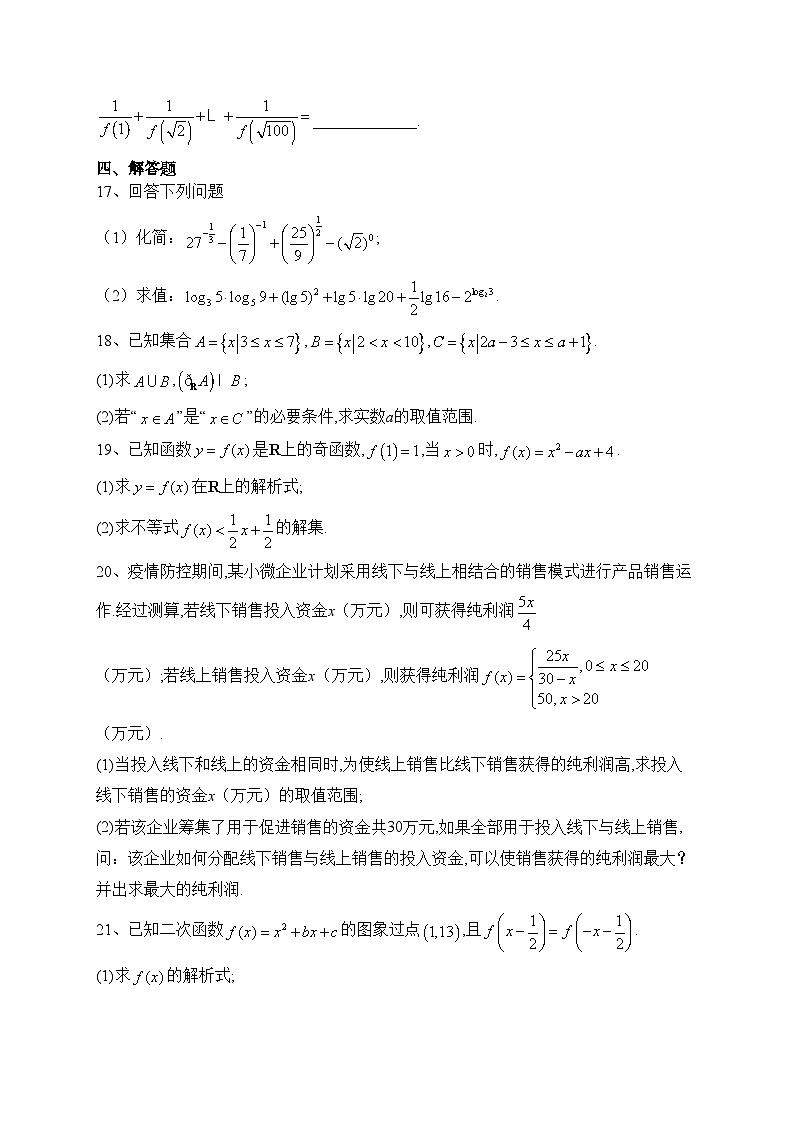 1/f(1) + 1/f(√2) + L + 1/f(√100) = ______________.
四、解答题
17、回答下列问题
（1）化简：27^(-1/3) − (1/7)^(−1) + (25/9)^(1/2) − (√2)^0；
（2）求值：log₃5·log₅9+(lg5)²+lg5·lg20+1/2 lg16−2^(log₂3).
18、已知集合A={x|3≤x≤7},B={x|2<x<10},C={x|2a−3≤x≤a+1}.
(1)求A∪B,(ð_R A)I B;
(2)若“x∈A”是“x∈C”的必要条件,求实数a的取值范围.
19、已知函数y=f(x)是R上的奇函数,f(1)=1,当x>0时,f(x)=x²−ax+4.
(1)求y=f(x)在R上的解析式;
(2)求不等式f(x)<1/2 x+1/2的解集.
20、疫情防控期间,某小微企业计划采用线下与线上相结合的销售模式进行产品销售运
作.经过测算,若线下销售投入资金x（万元）,则可获得纯利润5x/4
（万元）;若线上销售投入资金x（万元）,则获得纯利润f(x)={25x/(30−x),0≤x≤20
50,x>20
（万元）.
(1)当投入线下和线上的资金相同时,为使线上销售比线下销售获得的纯利润高,求投入
线下销售的资金x（万元）的取值范围;
(2)若该企业筹集了用于促进销售的资金共30万元,如果全部用于投入线下与线上销售,
问：该企业如何分配线下销售与线上销售的投入资金,可以使销售获得的纯利润最大？
并出求最大的纯利润.
21、已知二次函数f(x)=x²+bx+c的图象过点(1,13),且f(x−1/2)=f(−x−1/2).
(1)求f(x)的解析式;